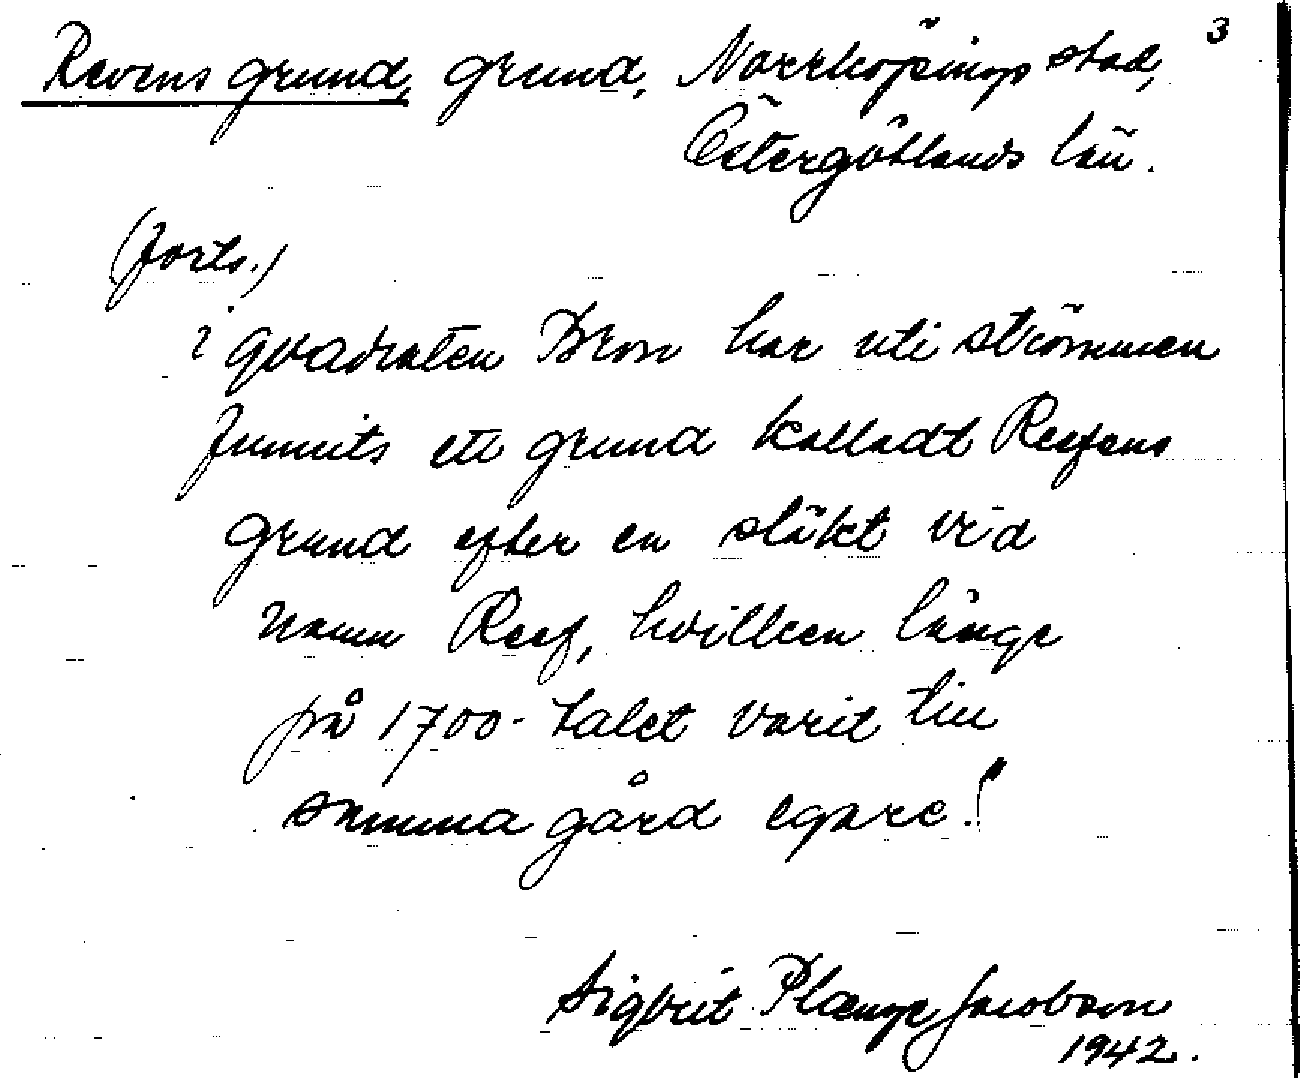 Revens grund, grund, Norrköpings stad, 3
Östergötlands län.
(forts.)
i qvadraten Bron har uti strömmen
funnits ett grund kalladt Reefens
grund efter en släkt vid
namn Reef, hvilken länge
på 1700-talet varit till
samma gård egare."
Sigbrit Plænge Jacobson
1942.